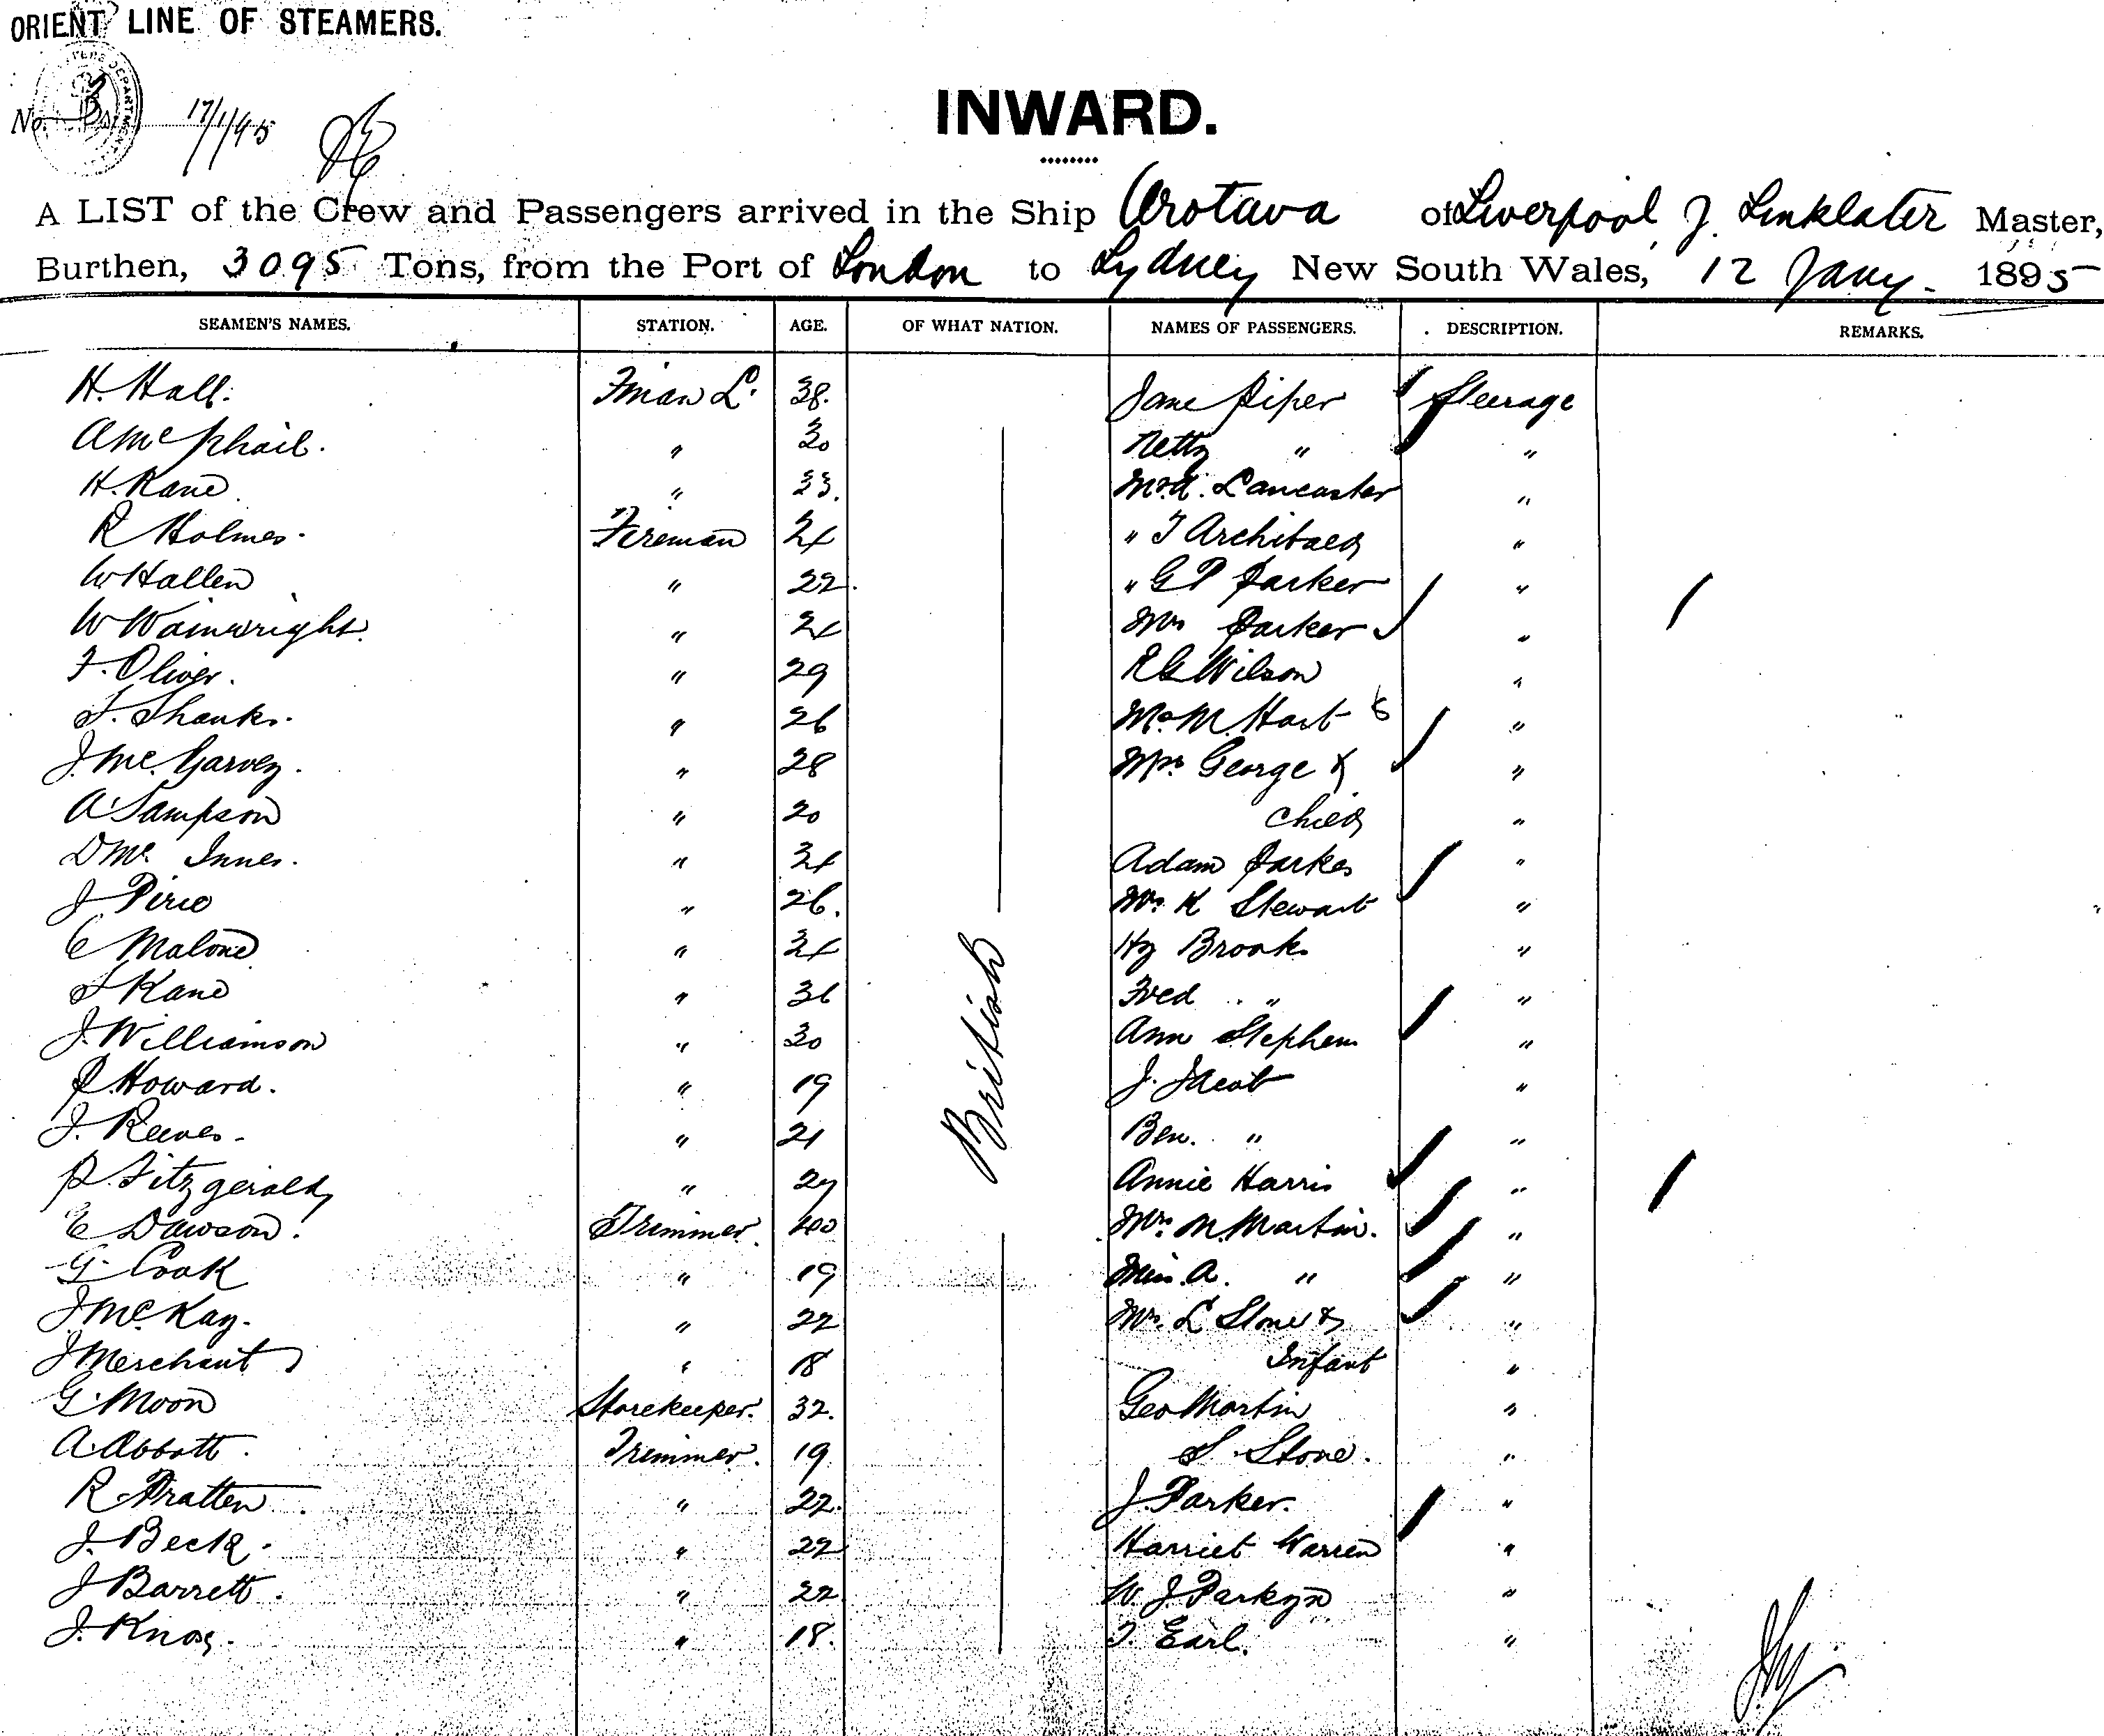 ORIENT LINE OF STEAMERS.
No. 3 17/1/95
INWARD.
A LIST of the Crew and Passengers arrived in the Ship Orotava of Liverpool, J. Linklater Master,
Burthen, 3095 Tons, from the Port of London to Sydney New South Wales, 12 Jany. 1895
SEAMEN'S NAMES. STATION. AGE. OF WHAT NATION. NAMES OF PASSENGERS. DESCRIPTION. REMARKS.
H. Hall. Fman L. 38. Jane Piper Steerage
A McPhail. " 30 Netty " "
H. Kane " 33. Lancaster "
R Holmes. Fireman 24 " T Archibald "
W Hallen " 22 " G P Parker "
W Wainwright. " 24 Mrs Parker "
F. Oliver. " 29 Wilson "
T. Shanks. " 26 M. Hart "
J. Mc.Garvey. " 28 Mrs George &
A Sampson " 20 Child "
D Mc Innes. " 34 Adam Parkes "
J Pirie " 26. Mrs K Stewart "
C Malone " 34 Hy Brooks "
S Kane " 36 Fred " "
J. Williamson " 30 Ann Stephens "
P. Howard. " 19 J. Jacob "
J. Reeves. " 21 Ben. " "
P. Fitzgerald " 27 Annie Harris "
E Dawson. Trimmer. 40 Mrs. M. Martin. "
G. Cook " 19 Miss A. " "
J McKay. " 22 Mrs. L Stone & "
J Merchant " 18 Infant "
G. Moon Storekeeper. 32. Geo Martin "
A. Abbott. Trimmer. 19 S. Stone. "
R. Pratten " 22. J. Parker. "
J. Beck. " 22 Harriet Warren "
J Barrett. " 22 W. J Parkyn "
J. Knox. " 18. T. Earl. "
British